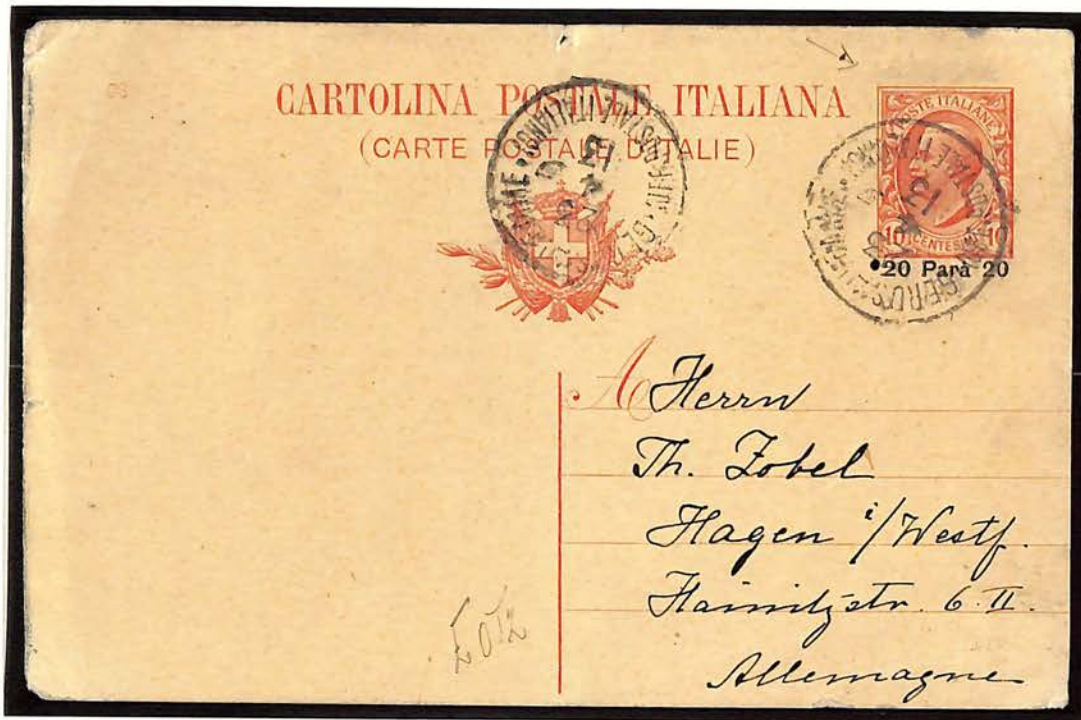 CARTOLINA POSTALE ITALIANA
(CARTE POSTALE D'ITALIE)
POSTE ITALIANE
10 CENTESIMI 10
20 Parà 20
GERUSALEMME
A Herrn
Th. Zobel
Hagen i/Westf.
6 II.
Allemagne